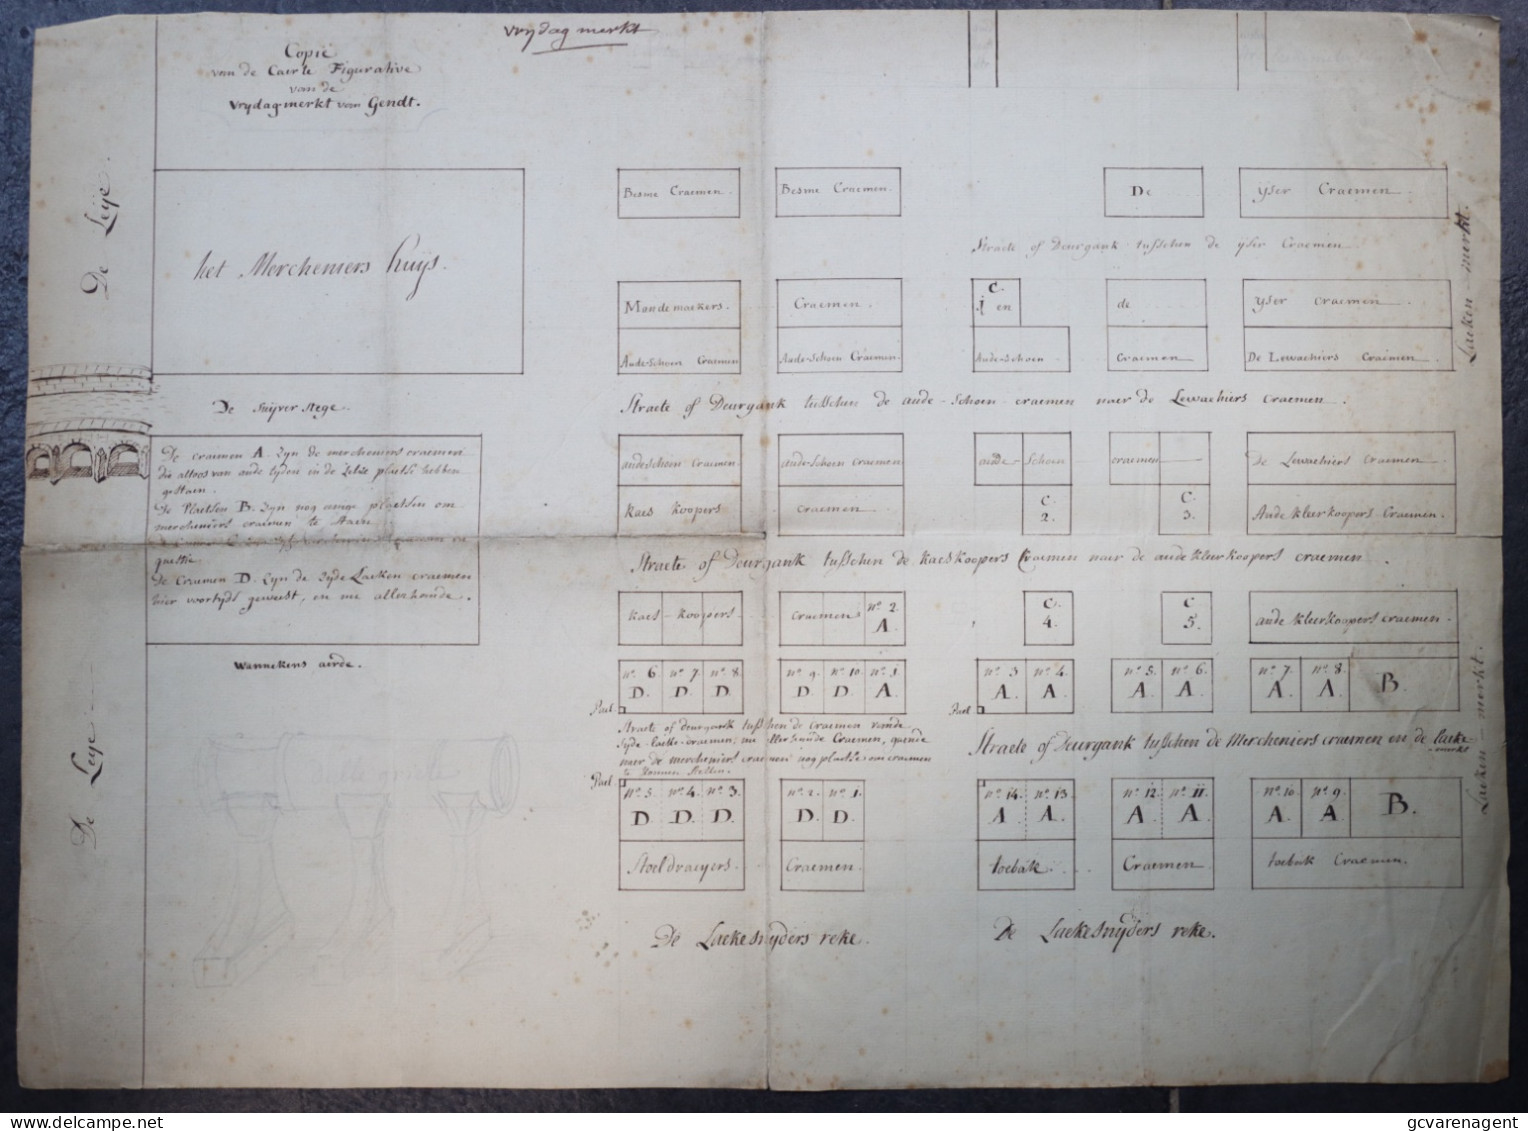 vrijdag merkt
Copie
van de Caerte Figurative
van de
Vrijdag-merkt van Gendt.
De Leije.
het Mercheniers huijs.
De Suijver stege.
De craemen A zijn de mercheniers craemen
die altoos van oude tijden in de zelve plaetse hebben
gestaen.
De Plaetsen B. zijn nog eenige plaetsen om
mercheniers craemen te staen
questie.
De Craemen D. zijn de zijde Laeken craemen
hier voortijds geweest, en nu allerhande.
Wannekens aerde.
De Leije
dulle griete
Besme Craemen.
Besme Craemen.
De
ijser Craemen
Straete of Deurgank tusschen de ijser Craemen
Mandemaekers.
Craemen.
C.
1 en
de
ijser craemen
Aude-schoen Craemen
Aude-schoen Craemen.
Aude-schoen
craemen
De Lewaehiers Craemen
Straete of Deurgank tusschen de aude-schoen-craemen naer de Lewaehiers craemen.
audeschoen craemen.
aude-schoen craemen
aude-schoen
craemen
De Lewaehiers Craemen
kaes koopers
craemen
C.
2.
C.
3.
Aude kleerkoopers-Craemen.
Straete of Deurgank tusschen de kaeskoopers Craemen naer de aude kleerkoopers craemen.
kaes-koopers
craemens
No. 2.
A.
C.
4.
C
5.
aude kleerkoopers craemen.
No. 6 No. 7. No. 8.
D. D. D.
No. 9. No. 10. No. 1.
D. D. A.
No. 3 No. 4.
A. A.
No. 5. No. 6.
A. A.
No. 7. No. 8.
A. A. B.
Pael
Pael
Straete of deurgank tusschen de craemen vande
sijde-laeke-craemen; nu allerhande Craemen, gaende
naer de mercheniers craemen nog plaetse om craemen
te konnen stellen.
Straete of Deurgank tusschen de Mercheniers craemen en de Laeke-
merkt
Pael
No. 5. No. 4. No. 3.
D. D. D.
No. 2. No. 1.
D. D.
No. 14. No. 13.
A A.
No. 12. No. 11.
A A.
No. 10. No. 9.
A. A B.
Stoeldraeyers.
Craemen.
toebak.
Craemen.
toebak Craemen.
De Laekesnijders reke.
De Laekesnijders reke.
Laeken-merkt.
Laeken-merkt.
gcvarenagent
delcampe.net